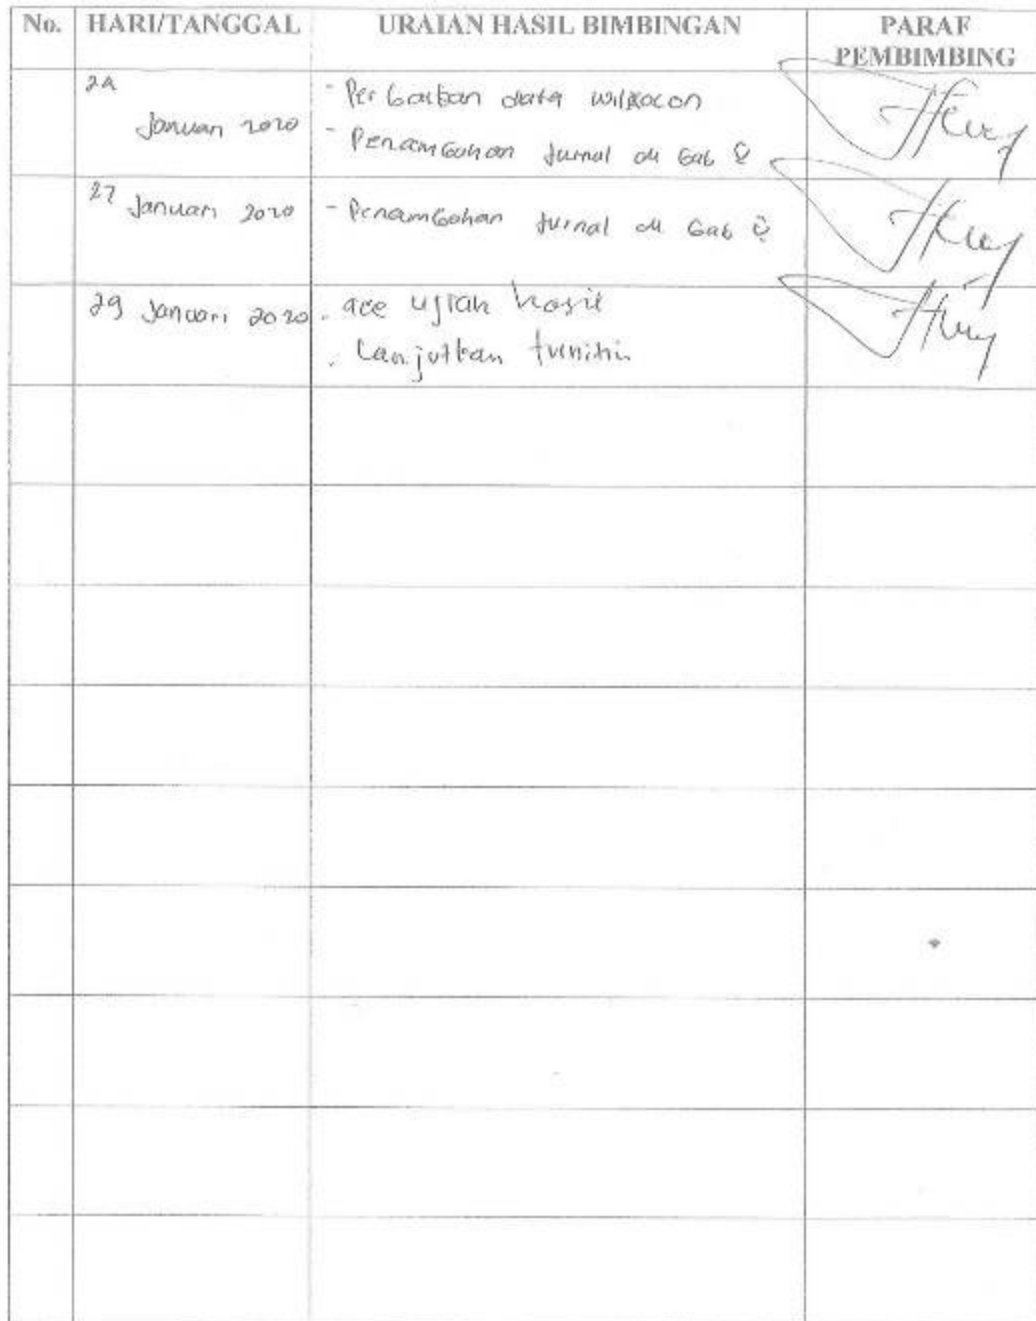 No. HARI/TANGGAL URAIAN HASIL BIMBINGAN PARAF PEMBIMBING
24 Januari 2020
- Perbaikan data wilxocon
- Penambahan jurnal di bab
27 Januari 2020
- Penambahan jurnal di bab
29 Januari 2020
. acc ujian hasil
. Lanjutkan turnitin